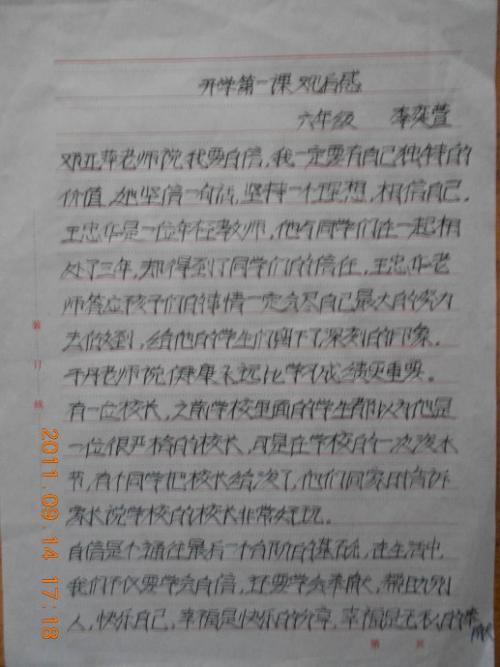 开学第一课观后感
六年级 李奕萱
邓亚萍老师说我要自信,我一定要有自己独特的
价值,她坚信一句话,坚持一个理想,相信自己。
王忠华是一位年轻教师,他与同学们在一起相
处了三年,却得到了同学们的信任,王忠华老
师答应孩子们的事情一定会尽自己最大的努力
去做到,给他的学生们留下了深刻的印象。
于丹老师说健康永远比学习成绩更重要。
有一位校长,之前学校里面的学生都以为他是
一位很严格的校长,可是在学校的一次泼水
节,有个同学把校长给泼了,他们回家以后告诉
家长说学校的校长非常好玩。
自信是个通往最后一个台阶的基石,在生活中,
我们不仅要学会自信,还要学会奉献,帮助别
人,快乐自己,幸福是快乐的分享,幸福是无私的奉献
装
订
线
2011.09.14 17:18
第 页